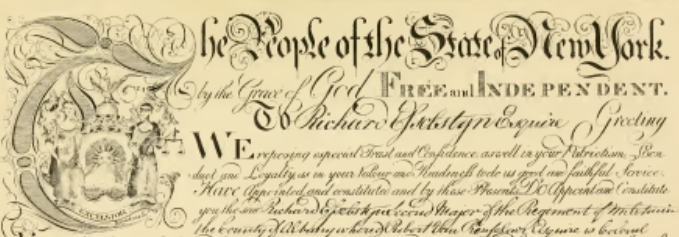 The People of the State of New York.
by the Grace of God FREE and INDEPENDENT.
To Richard Esselstyn Esquire Greeting
WE reposing especial Trust and Confidence as well in your Patriotism, Con-
duct and Loyalty as in your Valour and Readiness to do us good and faithful Service.
Have Appointed and constituted and by these Presents, DO Appoint and Constitute
you the said Richard Esselstyn second Major of the Regiment of Militia in
the County of Albany whereof Robert Van Rensselaer Esquire is Colonel
EXCELSIOR